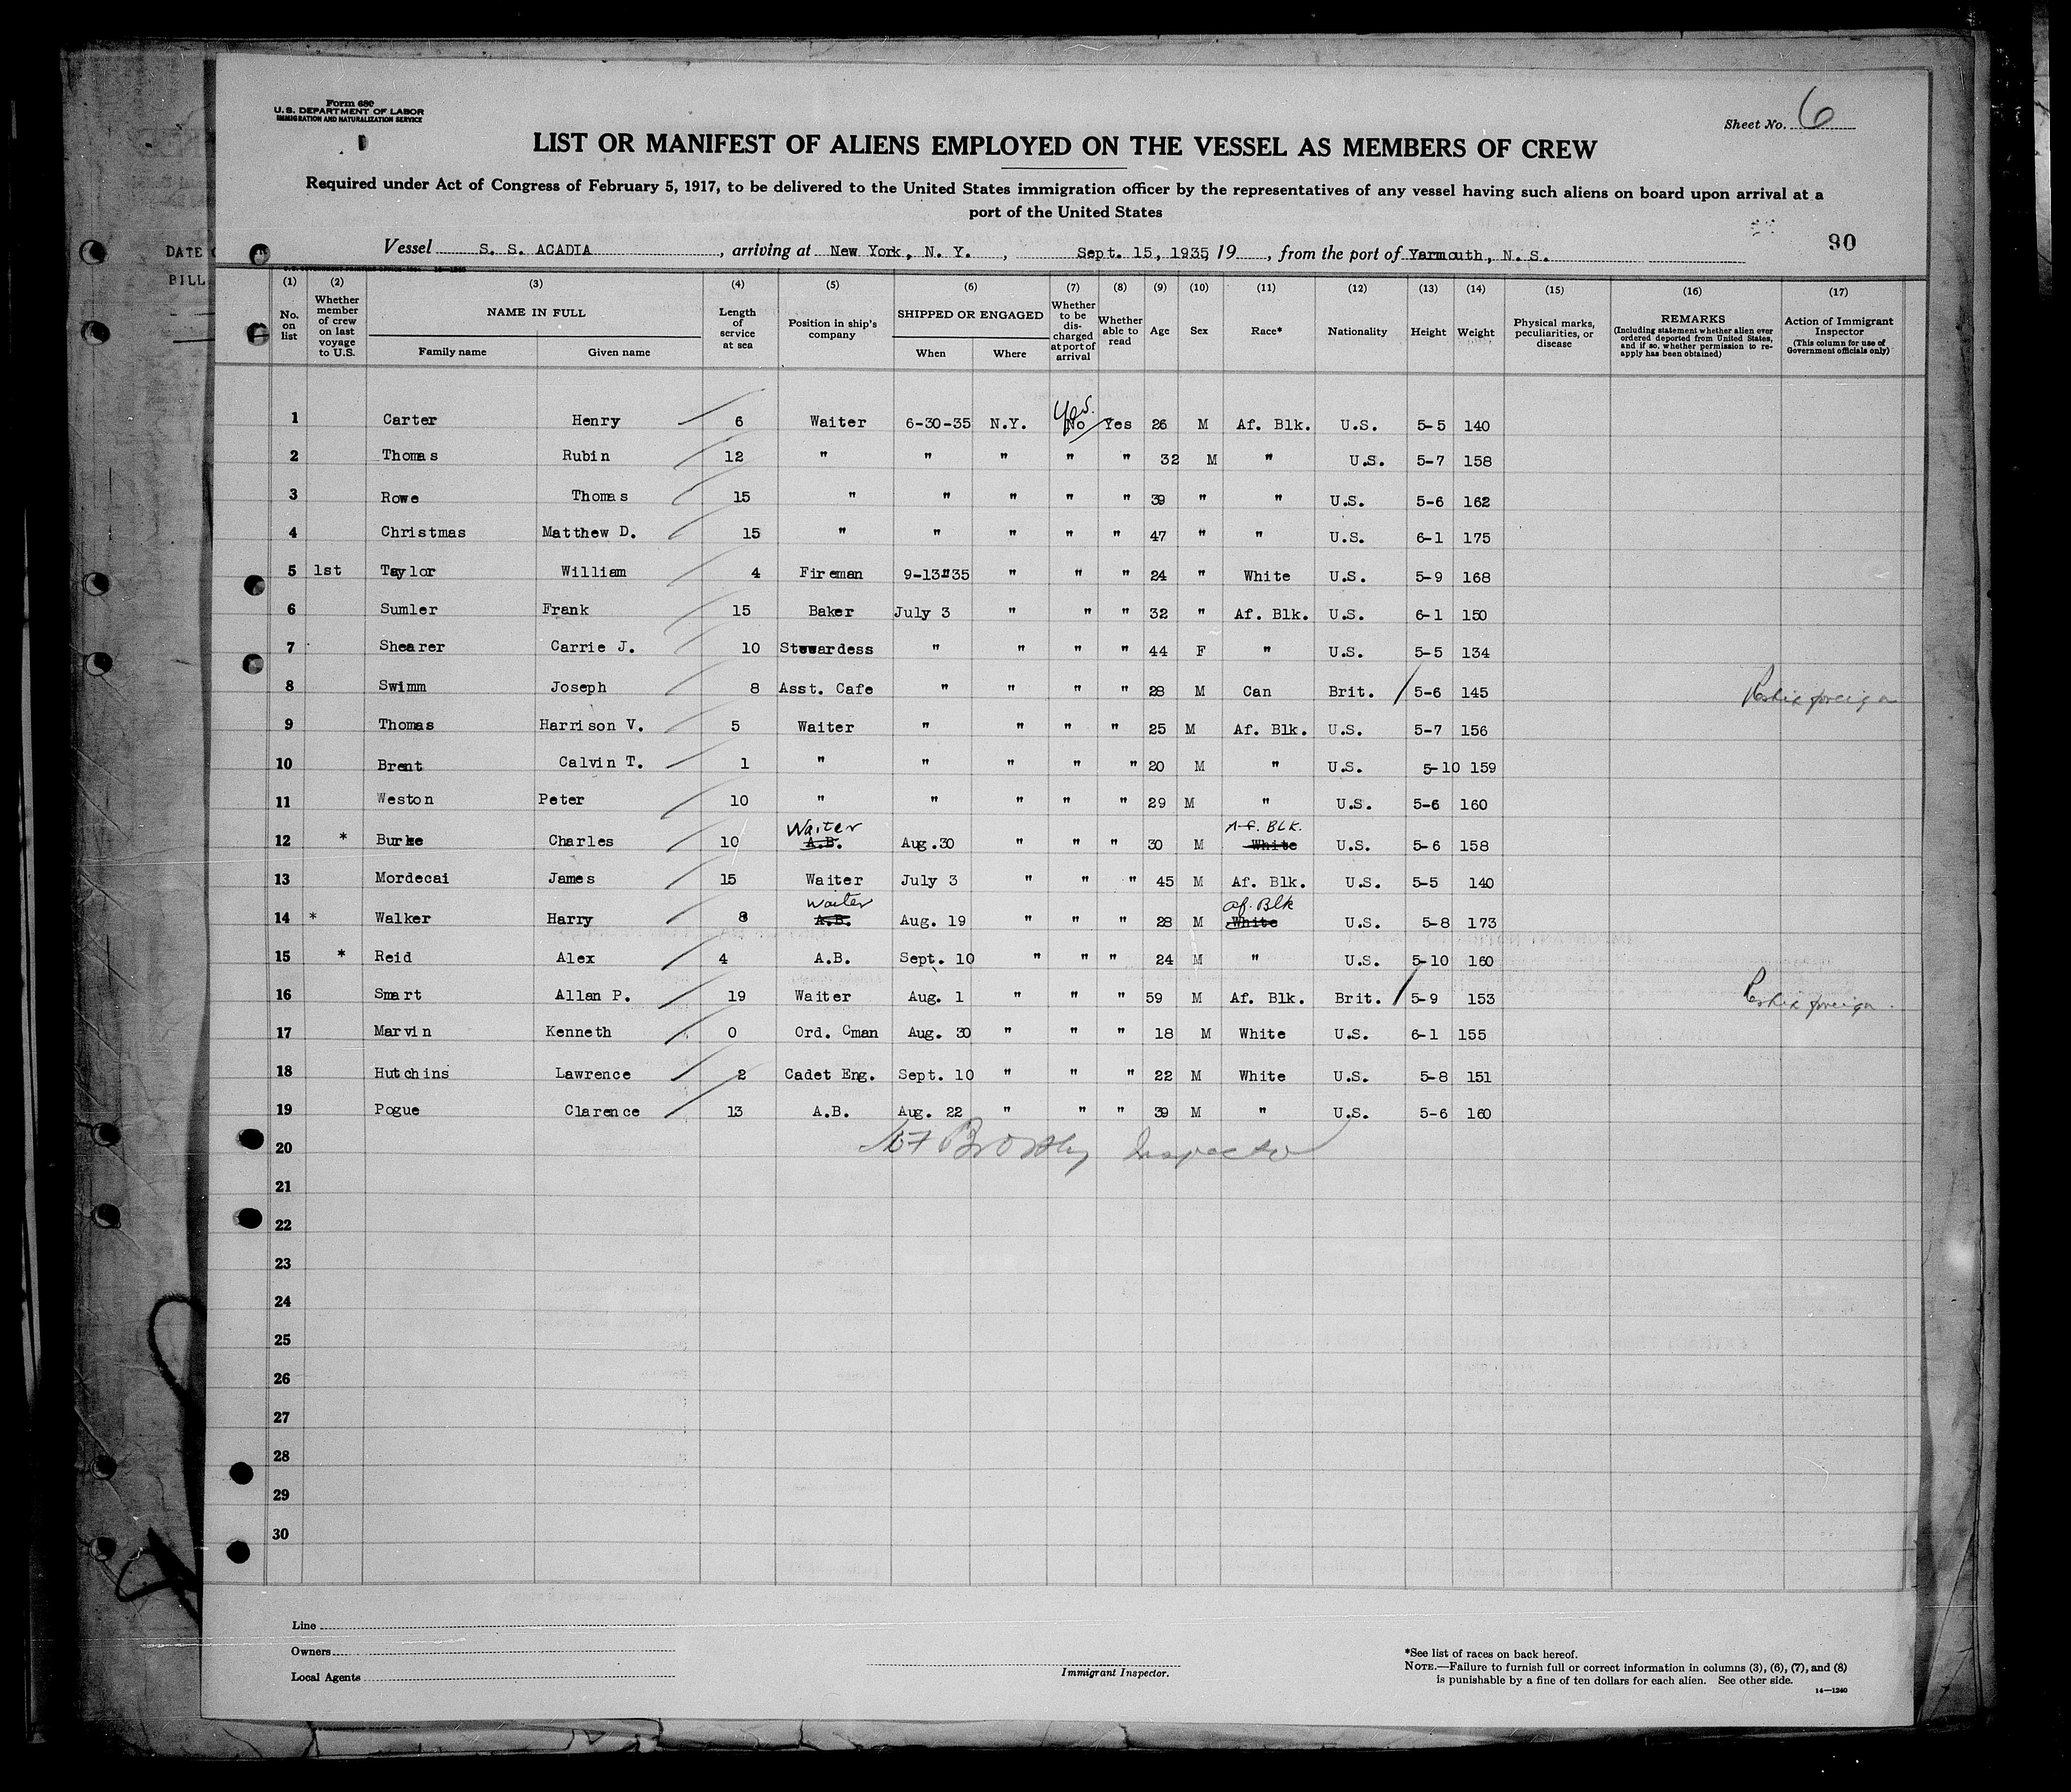 Form 680
U. S. DEPARTMENT OF LABOR
IMMIGRATION AND NATURALIZATION SERVICE
Sheet No. 6
LIST OR MANIFEST OF ALIENS EMPLOYED ON THE VESSEL AS MEMBERS OF CREW
Required under Act of Congress of February 5, 1917, to be delivered to the United States immigration officer by the representatives of any vessel having such aliens on board upon arrival at a
port of the United States
90
DATE
BILL
Vessel S. S. ACADIA, arriving at New York, N. Y., Sept. 15, 1935, 19, from the port of Yarmouth, N. S.
(1) No. on list
(2) Whether member of crew on last voyage to U.S.
(3) NAME IN FULL Family name Given name
(4) Length of service at sea
(5) Position in ship's company
(6) SHIPPED OR ENGAGED When Where
(7) Whether to be discharged at port of arrival
(8) Whether able to read
(9) Age
(10) Sex
(11) Race*
(12) Nationality
(13) Height
(14) Weight
(15) Physical marks, peculiarities, or disease
(16) REMARKS (Including statement whether alien ever ordered deported from United States, and if so, whether permission to reapply has been obtained)
(17) Action of Immigrant Inspector (This column for use of Government officials only)
1 Carter Henry 6 Waiter 6-30-35 N.Y. Yes. No Yes 26 M Af. Blk. U.S. 5-5 140
2 Thomas Rubin 12 " " " " " 32 M " U.S. 5-7 158
3 Rowe Thomas 15 " " " " " 39 " " U.S. 5-6 162
4 Christmas Matthew D. 15 " " " " " 47 " " U.S. 6-1 175
5 1st Taylor William 4 Fireman 9-13"35 " " " 24 " White U.S. 5-9 168
6 Sumler Frank 15 Baker July 3 " " " 32 " Af. Blk. U.S. 6-1 150
7 Shearer Carrie J. 10 Stewardess " " " " 44 F " U.S. 5-5 134
8 Swimm Joseph 8 Asst. Cafe " " " " 28 M Can Brit. 5-6 145 foreign
9 Thomas Harrison V. 5 Waiter " " " " 25 M Af. Blk. U.S. 5-7 156
10 Brent Calvin T. 1 " " " " " 20 M " U.S. 5-10 159
11 Weston Peter 10 " " " " " 29 M " U.S. 5-6 160
12 * Burke Charles 10 Waiter A.B. Aug.30 " " " 30 M Af. BLK. White U.S. 5-6 158
13 Mordecai James 15 Waiter July 3 " " " 45 M Af. Blk. U.S. 5-5 140
14 * Walker Harry 8 Waiter A.B. Aug. 19 " " " 28 M Af. Blk White U.S. 5-8 173
15 * Reid Alex 4 A.B. Sept. 10 " " " 24 M " U.S. 5-10 160
16 Smart Allan P. 19 Waiter Aug. 1 " " " 59 M Af. Blk. Brit. 5-9 153 foreign
17 Marvin Kenneth 0 Ord. Cman Aug. 30 " " " 18 M White U.S. 6-1 155
18 Hutchins Lawrence 2 Cadet Eng. Sept. 10 " " " 22 M White U.S. 5-8 151
19 Pogue Clarence 13 A.B. Aug. 22 " " " 39 M " U.S. 5-6 160
20 Inspector
21
22
23
24
25
26
27
28
29
30
Line
Owners
Local Agents
Immigrant Inspector.
*See list of races on back hereof.
NOTE.—Failure to furnish full or correct information in columns (3), (6), (7), and (8)
is punishable by a fine of ten dollars for each alien. See other side.
14—1240